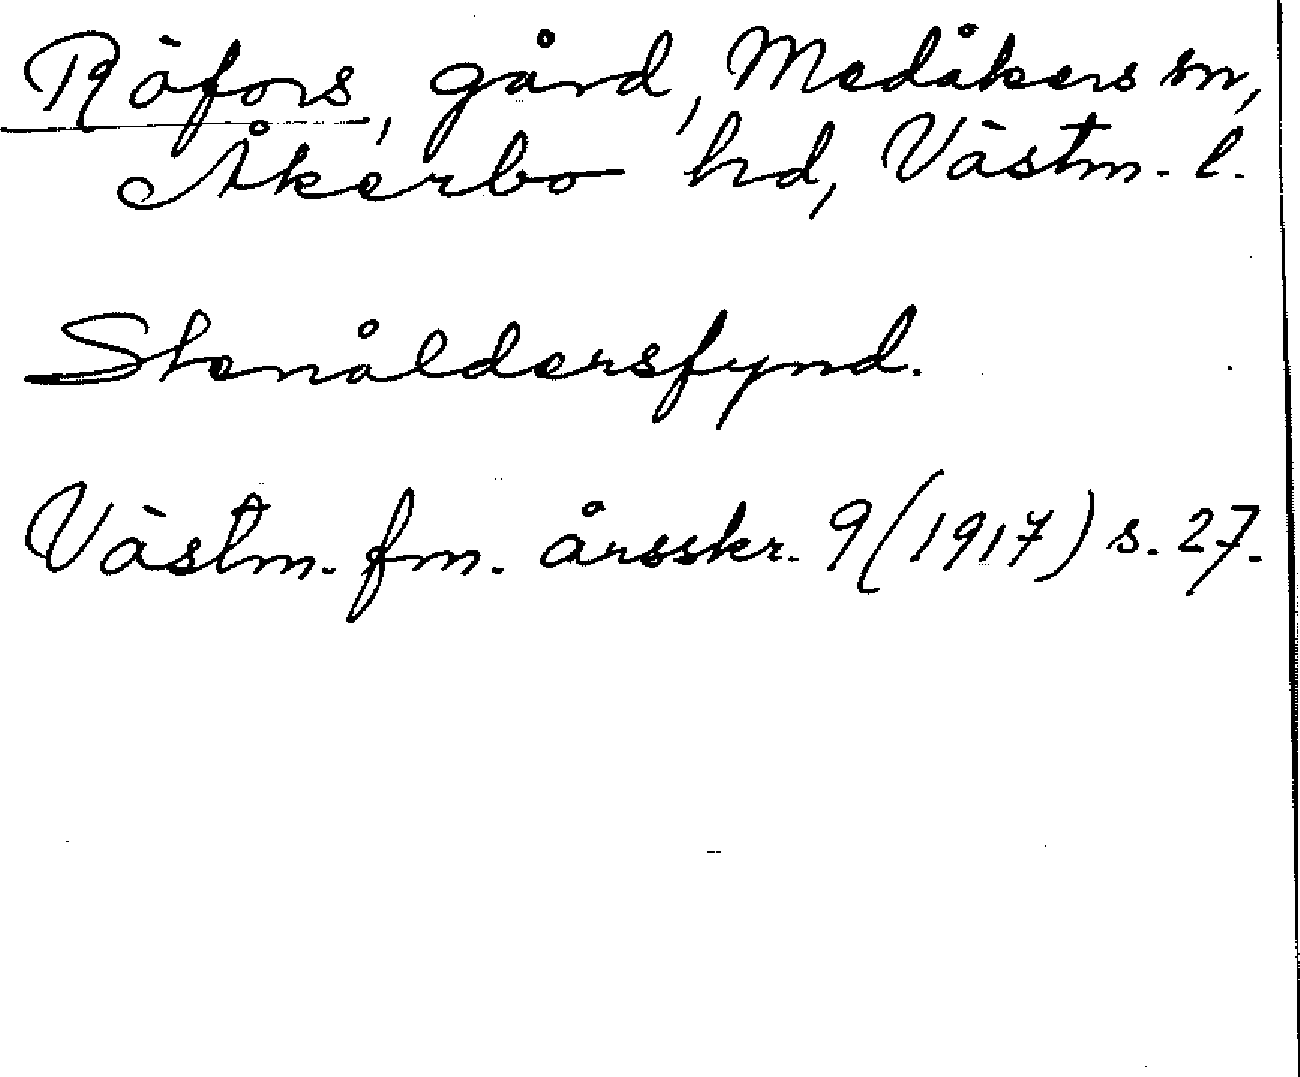 Räfors, gård, Medåkers sn,
Åkerbo hd, Västm. l.
Stenåldersfynd.
Västm. fm. årsskr. 9 (1917) s. 27.